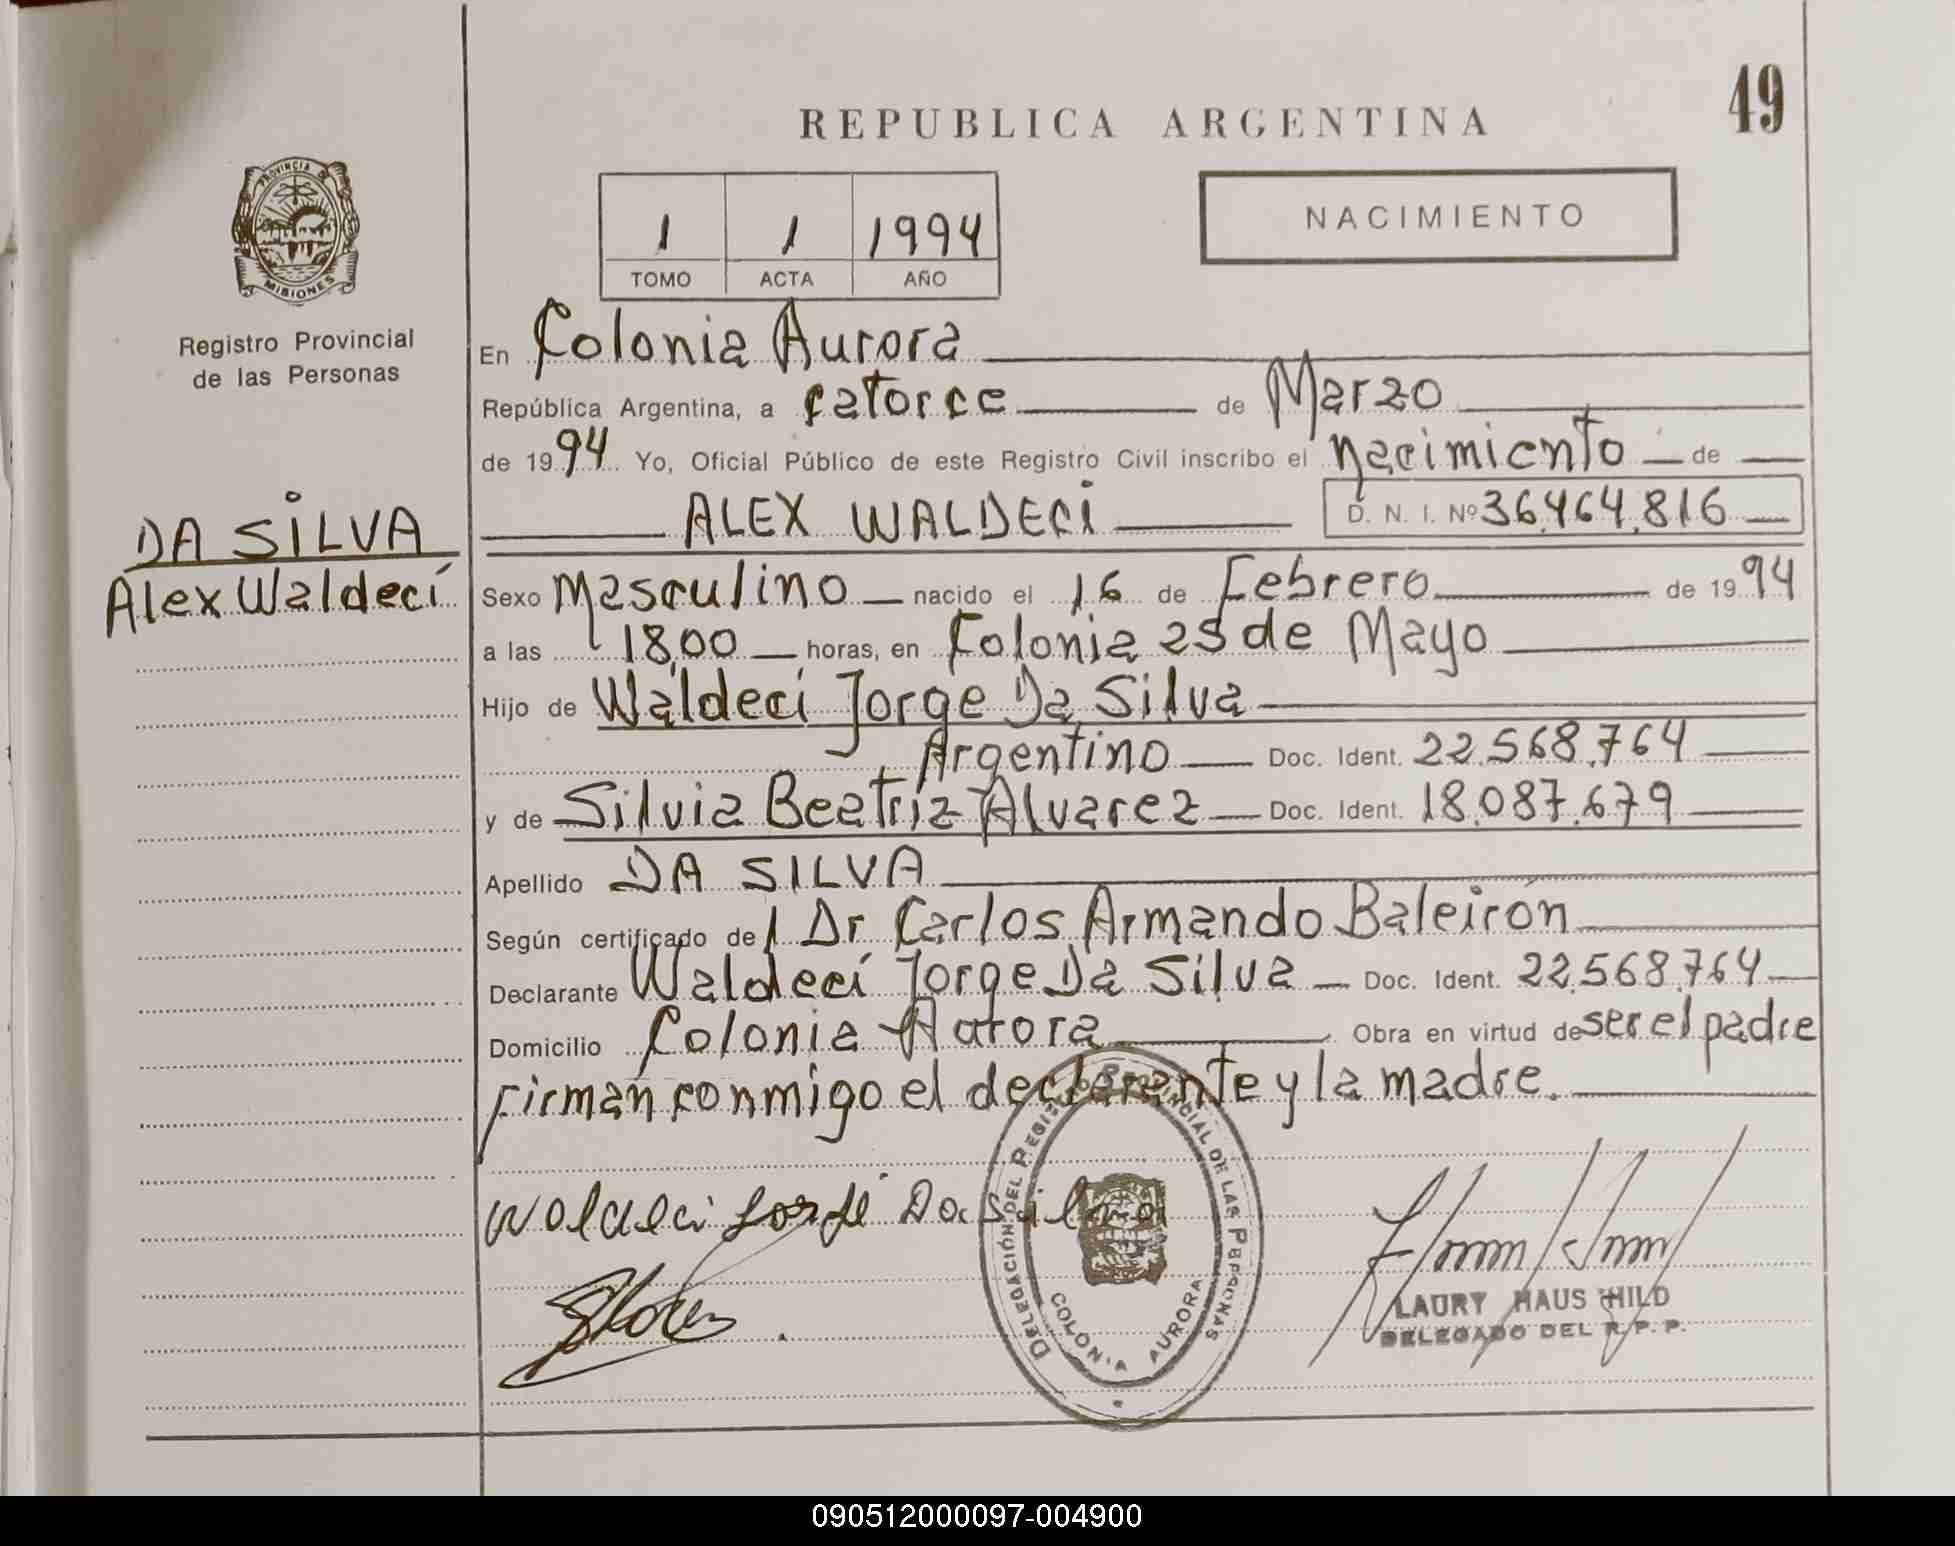 49
REPUBLICA ARGENTINA
PROVINCIA DE
MISIONES
Registro Provincial
de las Personas
1 1 1994
TOMO ACTA AÑO
NACIMIENTO
En Colonia Aurora
República Argentina, a catorce de Marzo
de 1994 Yo, Oficial Público de este Registro Civil inscribo el nacimiento de
ALEX WALDECI D. N. I. Nº 36.464.816
DA SILVA
Alex Waldecí
Sexo Masculino nacido el 16 de Febrero de 1994
a las 18,00 horas, en Colonia 25 de Mayo
Hijo de Waldecí Jorge Da Silva
Argentino Doc. Ident. 22.568.764
y de Silvia Beatríz Alvarez Doc. Ident. 18.087.679
Apellido DA SILVA
Según certificado del Dr Carlos Armando Baleirón
Declarante Waldecí Jorge Da Silva Doc. Ident. 22.568.764
Domicilio Colonia Aurora Obra en virtud de ser el padre
firman conmigo el declarante y la madre.
Waldeci Jorge Da Silva
DELEGACIÓN DEL REGISTRO PROVINCIAL DE LAS PERSONAS
COLONIA AURORA
LAURY HAUS HILD
DELEGADO DEL R.P.P.
090512000097-004900